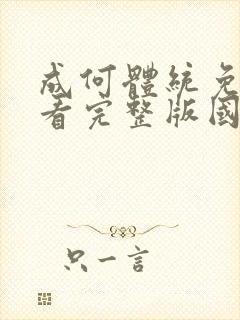 成何體統免
看完整版國
只一言